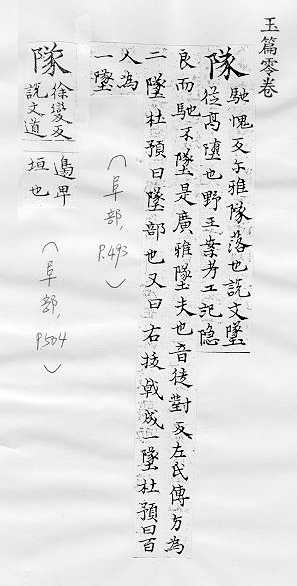 玉篇零卷
隊 馳愧反尓雅隊落也說文墜
從髙墮也野王案考工記隱
良而馳不墜是廣雅墜失也音徒對反左氏傳分為
二墜杜預曰墜部也又曰右拔戟成一墜杜預曰百
人為
一墜
（阜部, P.493）
隊 徐變反
說文道
邊卑
垣也
（阜部, P504）